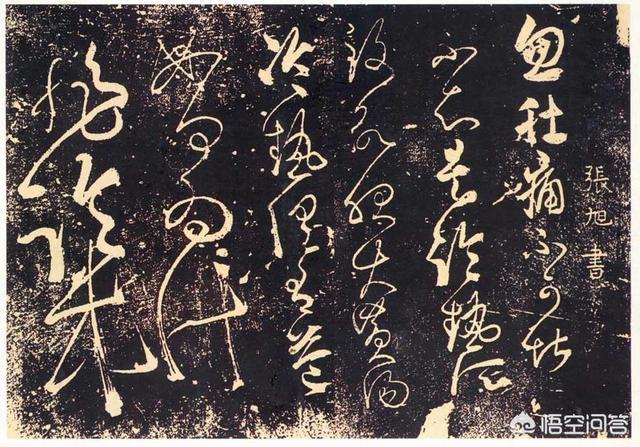 張旭書
忽肚痛不可堪
不知是冷熱所
致欲服大黃湯
冷熱俱有益
如何為計
非臨床
悟空问答